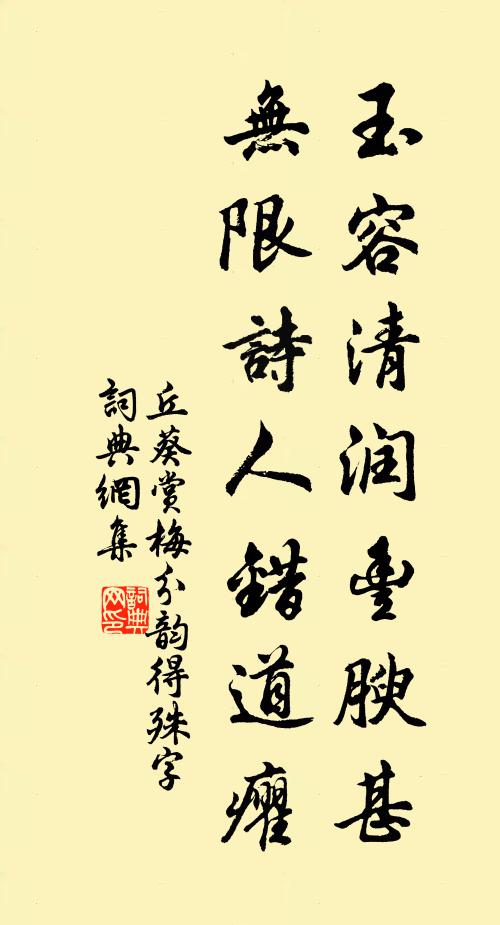 玉容清润豊腴甚
無限詩人錯道癯
丘葵賞梅分韵得殊字
詞典網集
詞典网印